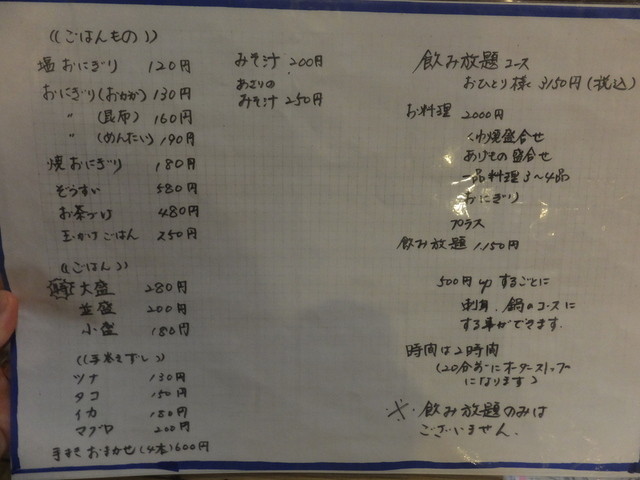 ((ごはんもの))
塩おにぎり 120円
おにぎり(おかか) 130円
〃 (昆布) 160円
〃 (めんたい) 190円
焼おにぎり 180円
ぞうすい 580円
お茶づけ 480円
玉かけごはん 250円
((ごはん))
大盛 280円
並盛 200円
小盛 180円
((手巻きずし))
ツナ 130円
タコ 150円
イカ 180円
マグロ 200円
手まき おまかせ(4本)600円
みそ汁 200円
あさりの
みそ汁 250円
飲み放題コース
おひとり様 3150円(税込)
お料理 2000円
くし焼盛合せ
あげもの盛合せ
一品料理3〜4品
おにぎり)
プラス
飲み放題 1,150円
500円upするごとに
刺身、鍋のコースに
する事ができます.
時間は2時間
(20分前にオーダーストップ
になります)
※.飲み放題のみは
ございません.